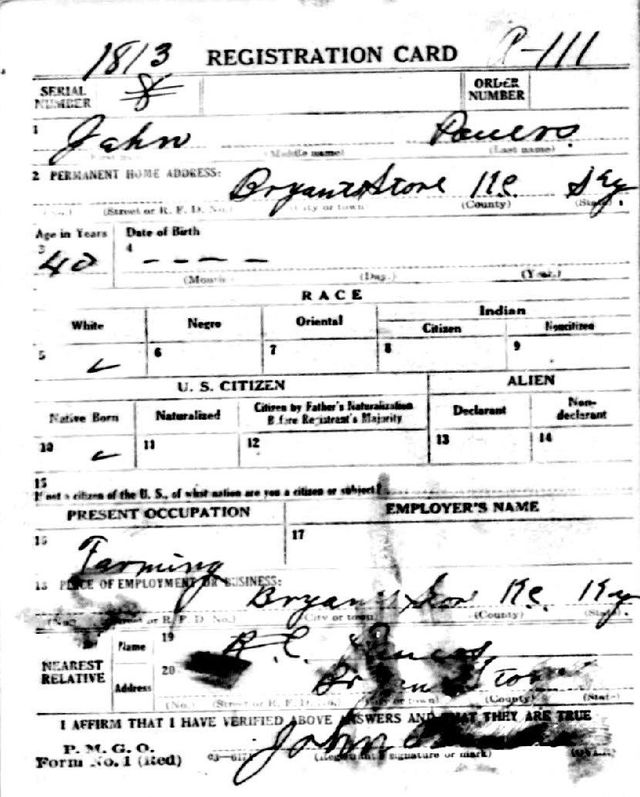 1813 REGISTRATION CARD P-111
SERIAL NUMBER 8 ORDER NUMBER
1 John Powers
(First name) (Middle name) (Last name)
2 PERMANENT HOME ADDRESS: Bryants Store Ky
(No.) (Street or R. F. D. No.) (City or town) (County) (State)
Age in Years Date of Birth
3 40 4 – – – –
(Month) (Day) (Year)
RACE
White Negro Oriental Indian
Citizen Noncitizen
5 ✓ 6 7 8 9
U. S. CITIZEN ALIEN
Native Born Naturalized Citizen by Father's Naturalization Before Registrant's Majority Declarant Non-declarant
10 ✓ 11 12 13 14
15
If not a citizen of the U. S., of what nation are you a citizen or subject?
PRESENT OCCUPATION EMPLOYER'S NAME
16 Farming 17
18 PLACE OF EMPLOYMENT OR BUSINESS: Bryants Ky
(No.) (Street or R. F. D. No.) (City or town) (County) (State)
NEAREST RELATIVE Name 19
Address 20 Store
(No.) (Street or R. F. D. No.) (City or town) (County) (State)
I AFFIRM THAT I HAVE VERIFIED ABOVE ANSWERS AND THAT THEY ARE TRUE
P. M. G. O.
Form No. 1 (Red) 03-6171 John
(Registrant's signature or mark)